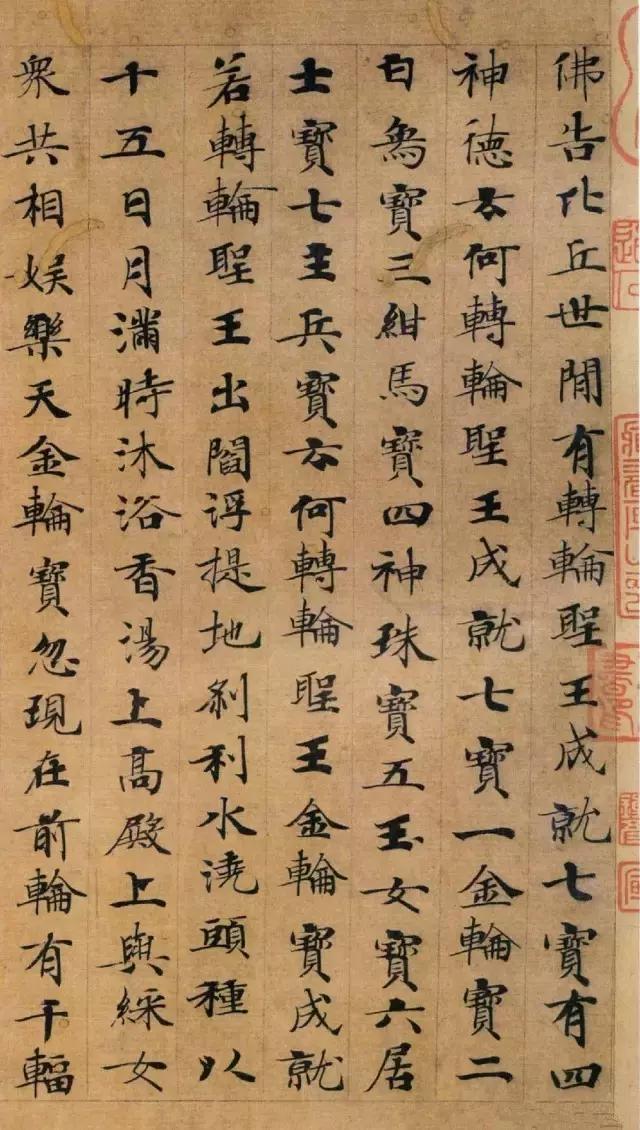 佛告比丘世閒有轉輪聖王成就七寶有四
神德云何轉輪聖王成就七寶一金輪寶二
白象寶三紺馬寶四神珠寶五玉女寶六居
士寶七主兵寶云何轉輪聖王金輪寶成就
若轉輪聖王出閻浮提地剎利水澆頭種以
十五日月滿時沐浴香湯上高殿上與綵女
衆共相娛樂天金輪寶忽現在前輪有千輻